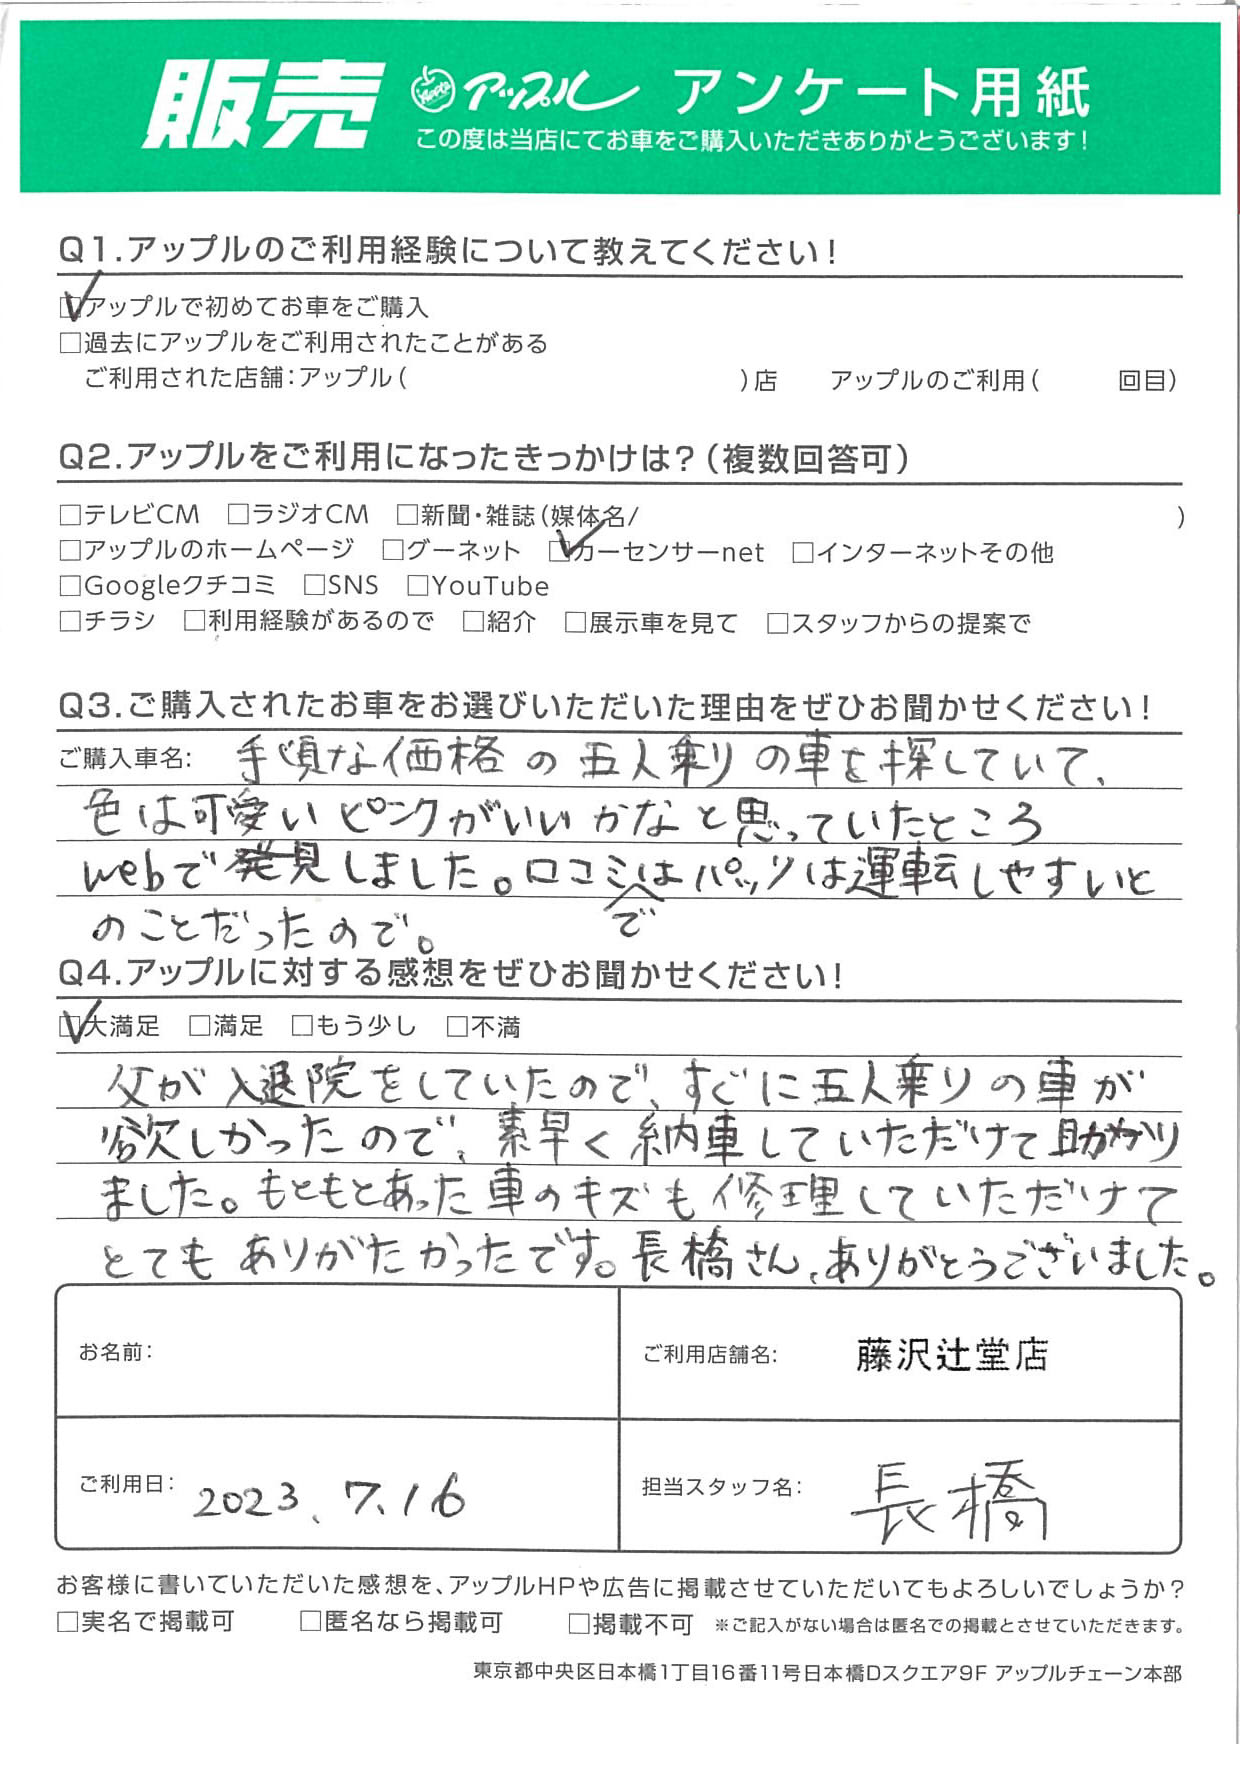 販売 Apple アップル アンケート用紙
この度は当店にてお車をご購入いただきありがとうございます!
Q1.アップルのご利用経験について教えてください!
☑アップルで初めてお車をご購入
□過去にアップルをご利用されたことがある
ご利用された店舗:アップル( )店 アップルのご利用( 回目)
Q2.アップルをご利用になったきっかけは?(複数回答可)
□テレビCM □ラジオCM □新聞・雑誌(媒体名/ )
□アップルのホームページ □グーネット ☑カーセンサーnet □インターネットその他
□Googleクチコミ □SNS □YouTube
□チラシ □利用経験があるので □紹介 □展示車を見て □スタッフからの提案で
Q3.ご購入されたお車をお選びいただいた理由をぜひお聞かせください!
ご購入車名: 手頃な価格の五人乗りの車を探していて、
色は可愛いピンクがいいかなと思っていたところ
webで発見しました。口コミではパッソは運転しやすいと
のことだったので。
Q4.アップルに対する感想をぜひお聞かせください!
☑大満足 □満足 □もう少し □不満
父が入退院をしていたので、すぐに五人乗りの車が
欲しかったので、素早く納車していただけて助かり
ました。もともとあった車のキズも修理していただけて
とてもありがたかったです。長橋さん、ありがとうございました。
お名前:
ご利用店舗名: 藤沢辻堂店
ご利用日: 2023.7.16
担当スタッフ名: 長橋
お客様に書いていただいた感想を、アップルHPや広告に掲載させていただいてもよろしいでしょうか?
□実名で掲載可 □匿名なら掲載可 □掲載不可 ※ご記入がない場合は匿名での掲載とさせていただきます。
東京都中央区日本橋1丁目16番11号日本橋Dスクエア9F アップルチェーン本部